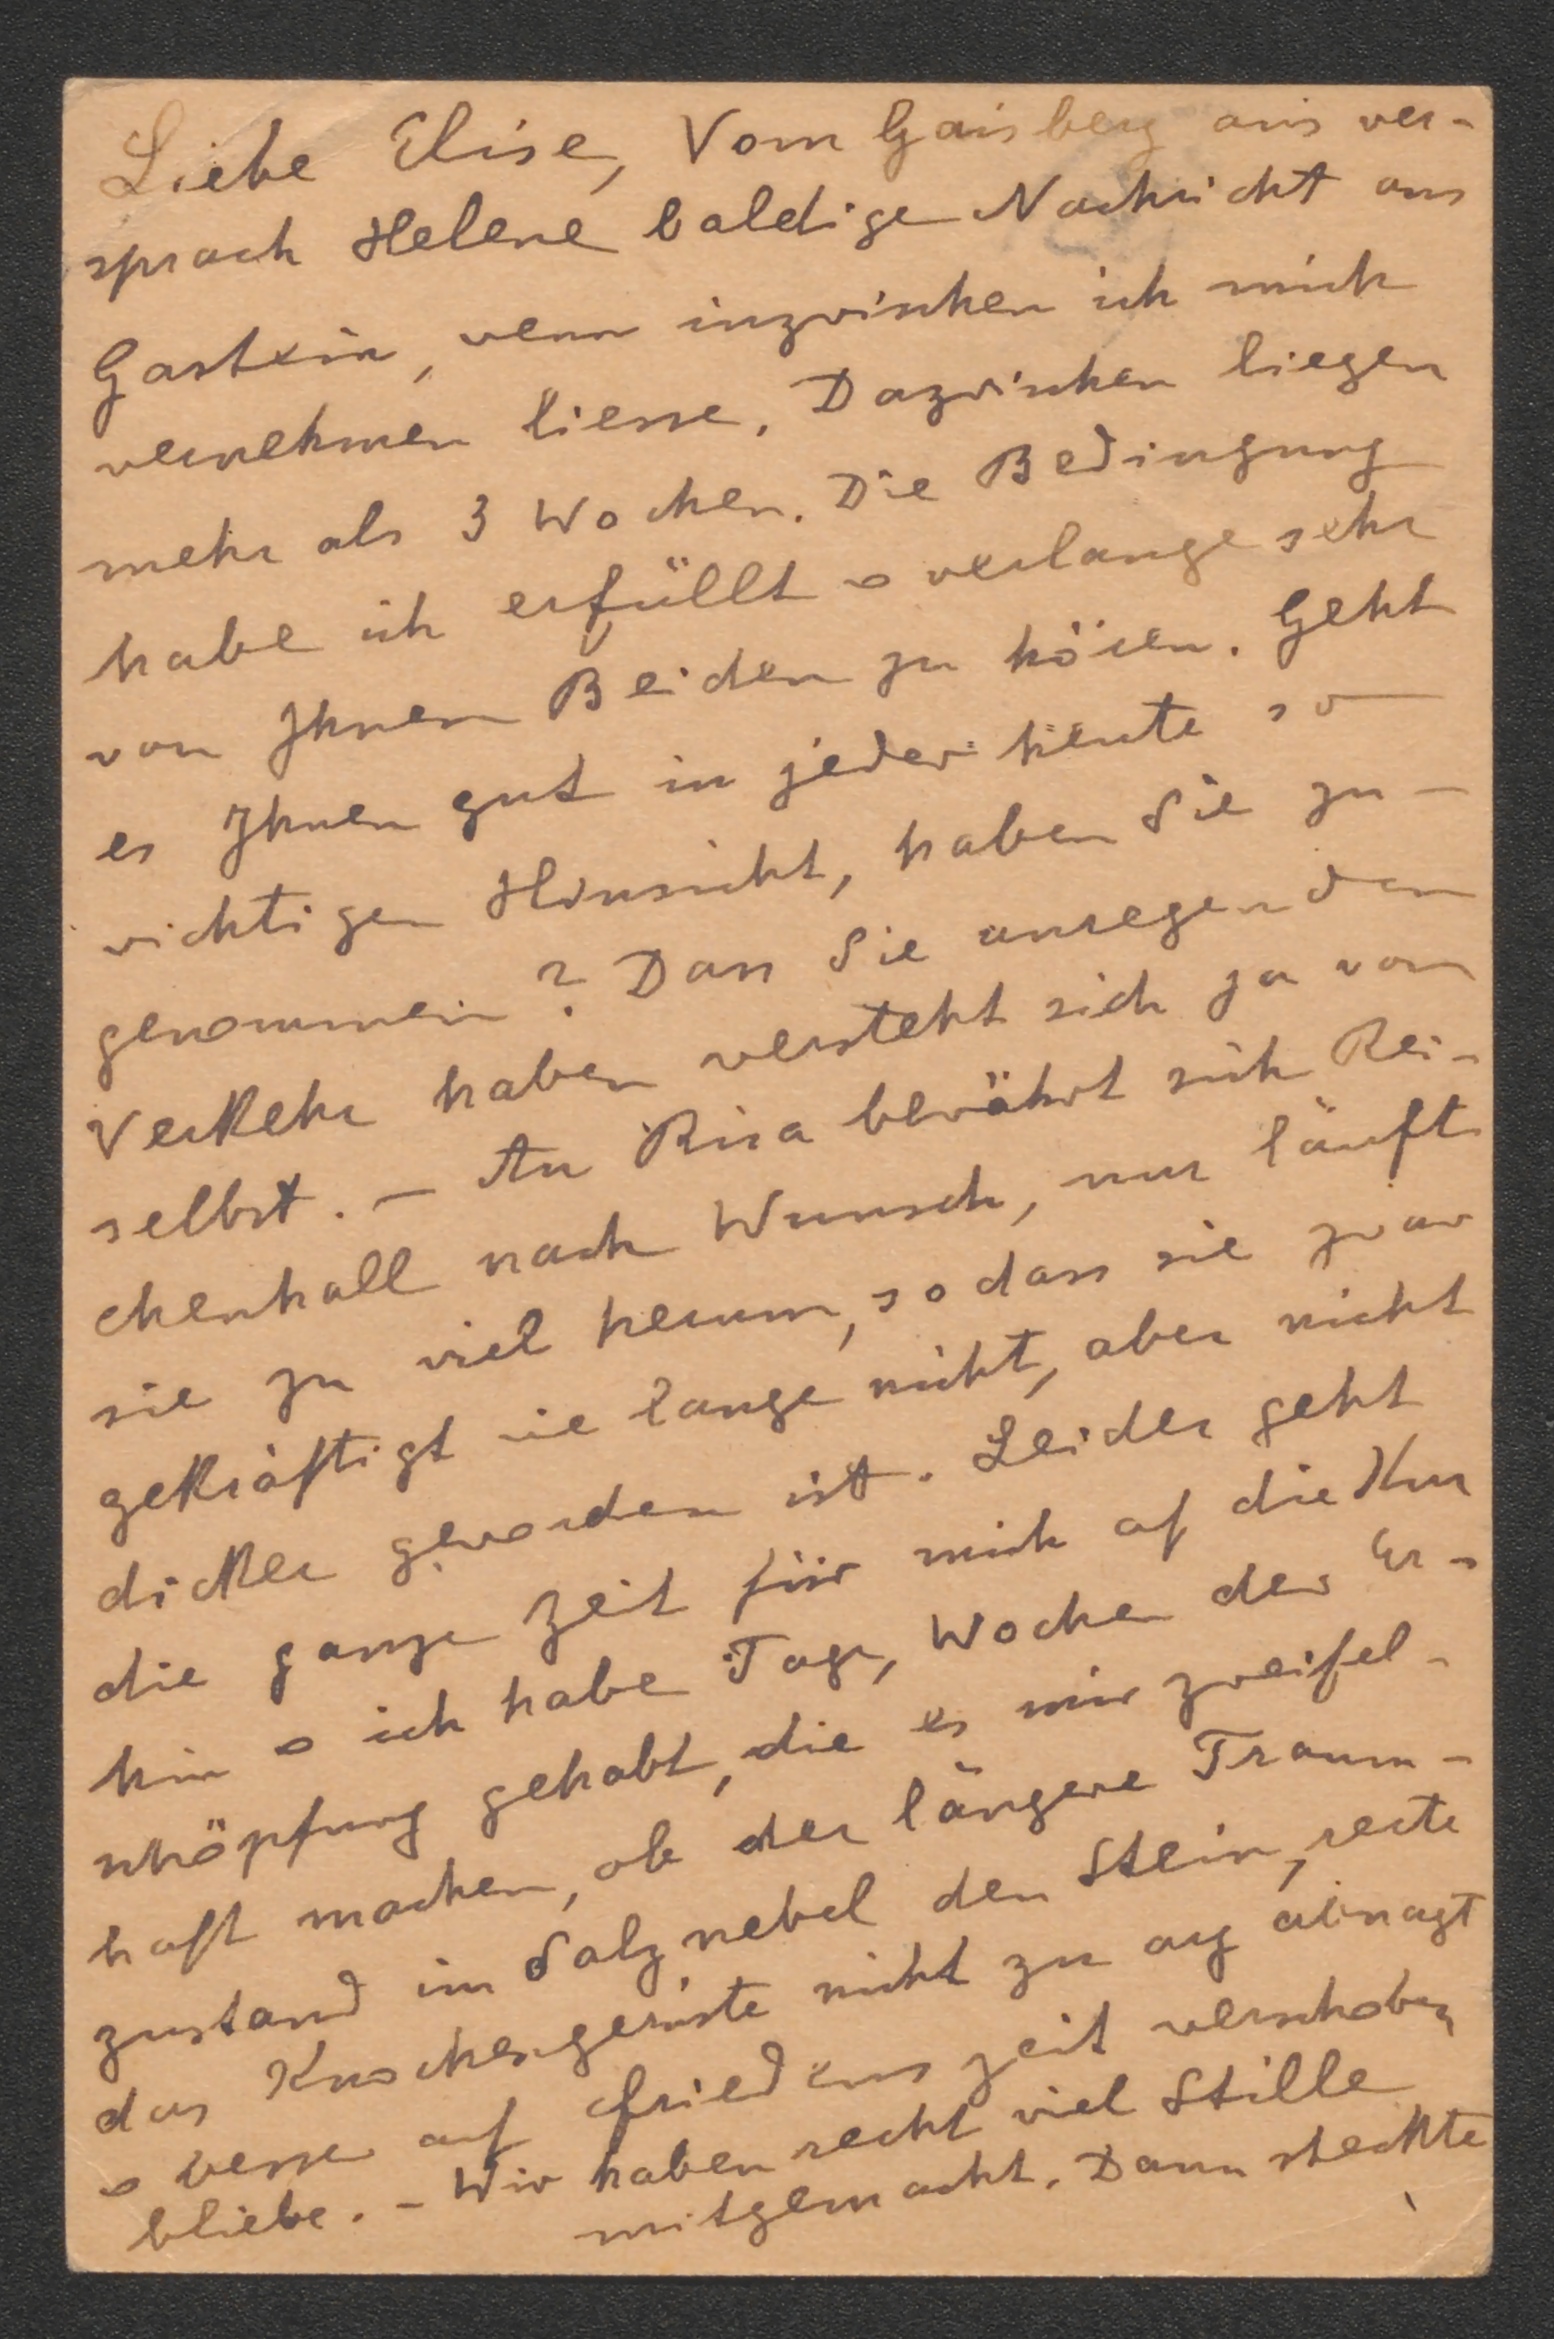 Liebe Elise, Vom Gaisberg aus ver-
sprach Helene baldige Nachricht aus
Gastein, wenn inzwischen ich mich
vernehmen liesse. Dazwischen liegen
mehr als 3 Wochen. Die Bedingung
habe ich erfüllt u verlange sehr
von Ihnen Beiden zu hören. Geht
es Ihnen gut in jeder heute so
wichtigen Hinsicht, haben Sie zu-
genommen? Dass Sie anregenden
Verkehr haben versteht sich ja von
selbst. – An Risa bewährt sich Rei-
chenhall nach Wunsch, nur läuft
sie zu viel herum, sodass sie zwar
gekräftigt wie lange nicht, aber nicht
dicker geworden ist. Leider geht
die ganze Zeit für mich auf die Kur
hin u ich habe Tage, Wochen der Er-
schöpfung gehabt, die es mir zweifel-
haft machen, ob der längere Traum-
zustand im Salznebel den Stein, recte
das Knochengerüste nicht zu arg abnagt
u besser auf Friedenszeit verschoben
bliebe. – Wir haben recht viel Stille
mitgemacht. Dann steckte